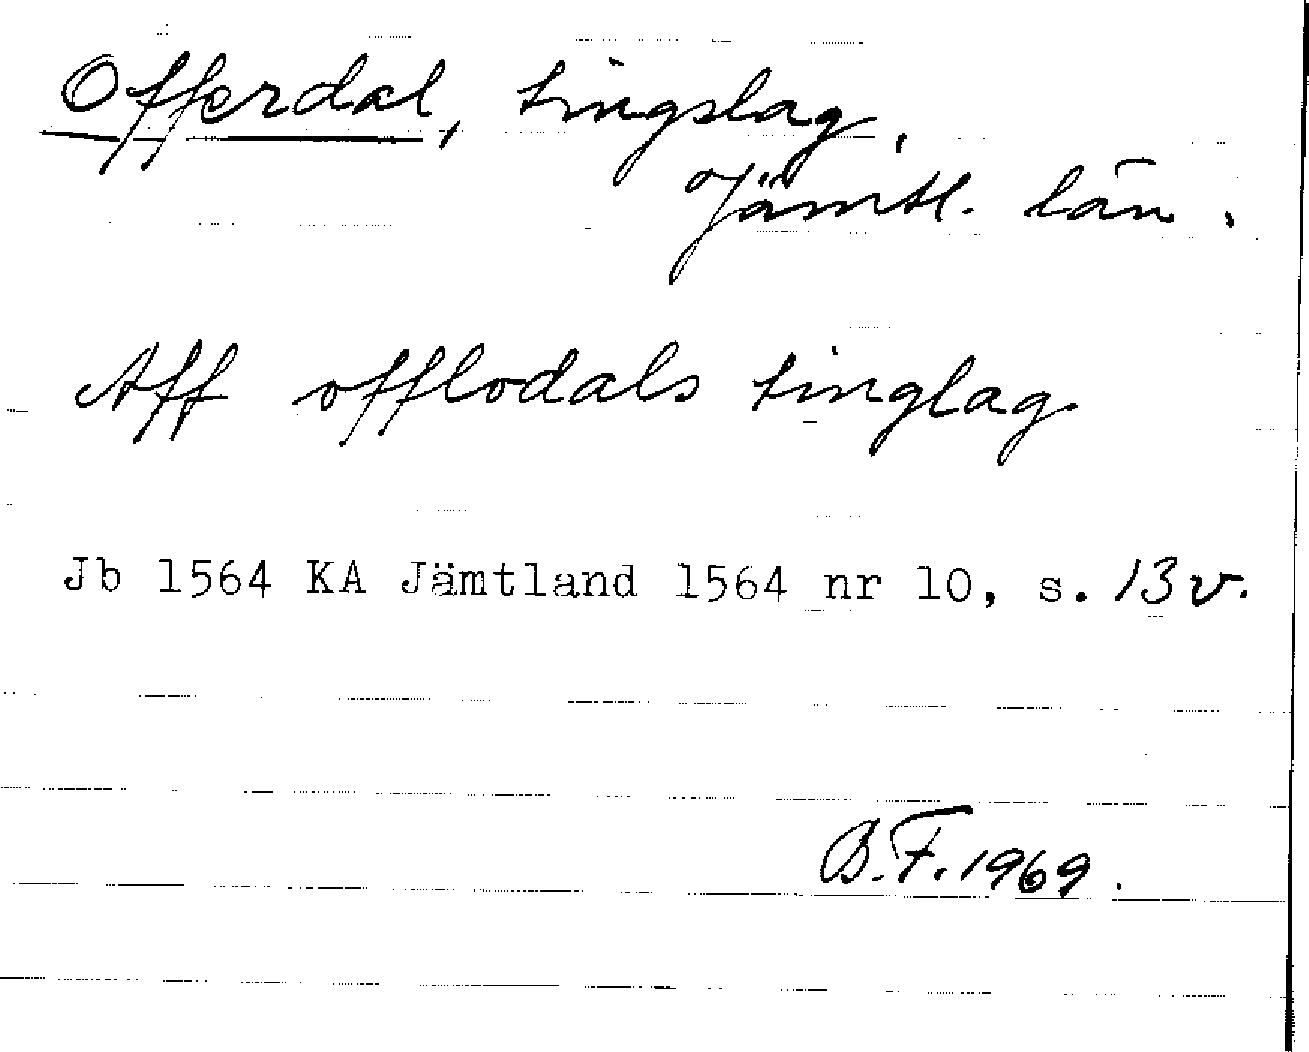 Offerdal, tingslag,
Jämtl. län.
Aff offlodals tinglag
Jb 1564 KA Jämtland 1564 nr 10, s. 13 v.
B.F. 1969.